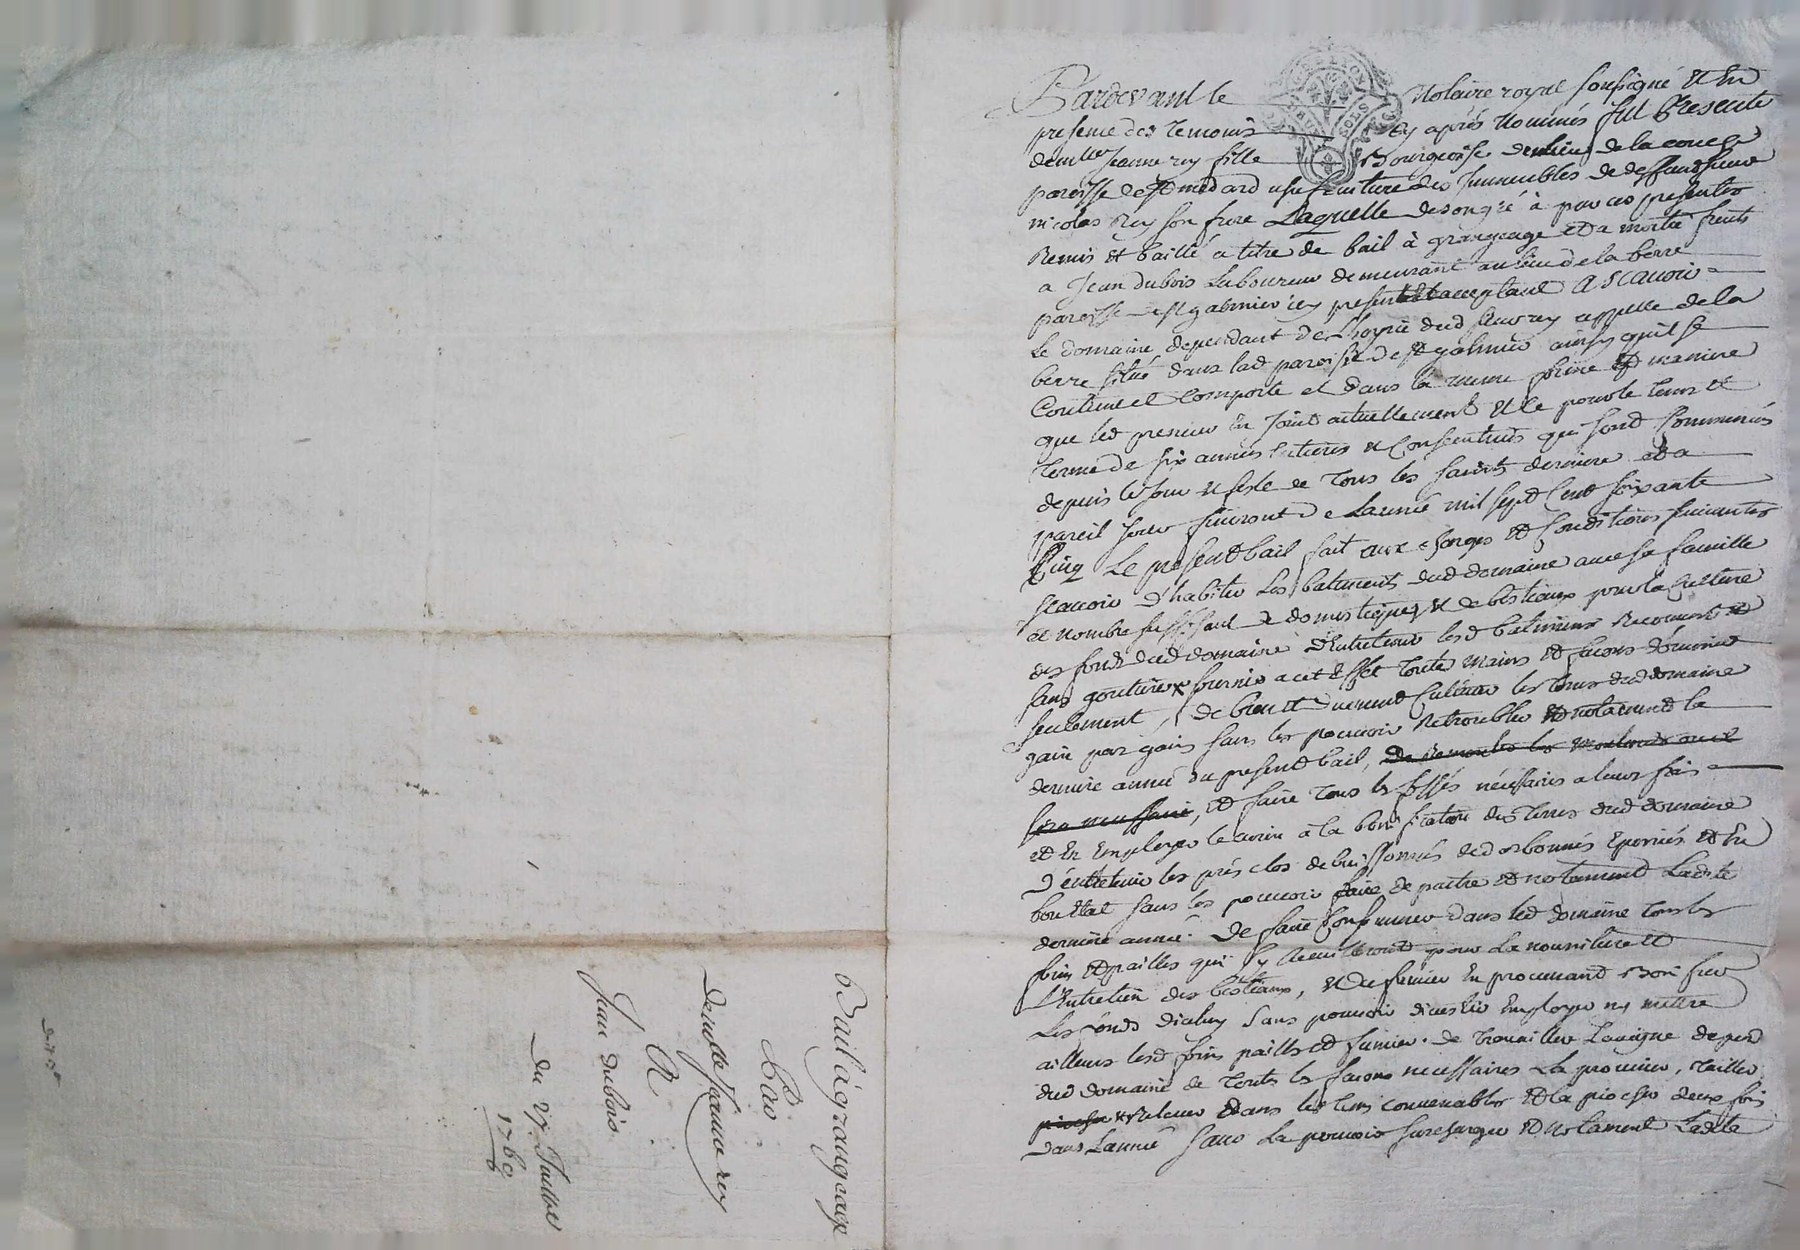 Pardevant le Notaire royal soussigné Et En
presence des temoins cy après Nommés fut Presente
demlle jeanne rey fille Bourgeoise du lieu de la
paroisse de st medard usufruitiere des Immeubles de deffunt sieur
nicolas Rey son frere Laquelle de son gré à par ces presentes
Remis et baillé a titre de bail à grangeage et a moitié fruits
a Jean dubois Laboureur demeurant au lieu de la berre
paroisse de st galmier icy present et acceptant a scavoir
Le domaine dependant de L'hoyrie dud sieur rey appellé de la
berre situé dans lad paroisse de st galmier ainsy qu'il se
Contient et Comporte et dans la meme forme et maniere
que led preneur En Jouit actuellement Et ce pour le tems et
terme de six années Entieres et Consecutives qui sont Commencées
depuis le jour et feste de Tous les saints derniere et a
pareil jour finiront de L'année mil sept Cent soixante
Cinq Le present bail fait aux charges et Conditions suivantes
scavoir d'habiter Les batiments dud domaine avec sa famille
et nombre suffisant de domestiques et de bestiaux pour la Culture
des fonds dud domaine d'Entretenir lesd batiments
sans goutieres fournir a cet Effet toutes mains et
seulement, de bien et duement Cultiver les terres dud domaine
gain par gain sans les pouvoir Retroubler et notament la
derniere année du present bail,
et faire tous les fossés nécéssaires a leurs frais
et En Employer le à la bonification des terres dud domaine
d'Entretenir les prés clos de buissonnés et En
bon Etat sans les pouvoir faire de paitre et notamment Ladite
derniere année. De faire Consumer dans led domaine tous les
foins et pailles qui s'y Recuilleront pour La nourriture et
L'Entretien des bestiaux, et du fumier En provenant
Les fonds d'iceluy Sans pouvoir Employer ny mettre
ailleurs lesd foins pailles et fumier. de travailler La vigne
dud domaine de toutes les façons necessaires La proviner, tailler
dans les tems convenables et la piocher deux fois
dans L'année sans La pouvoir surcharger et notament Ladite
Bail à grangeage
Par
Demlle Jeanne rey
A
Jean dubois
Du Juillet
1760